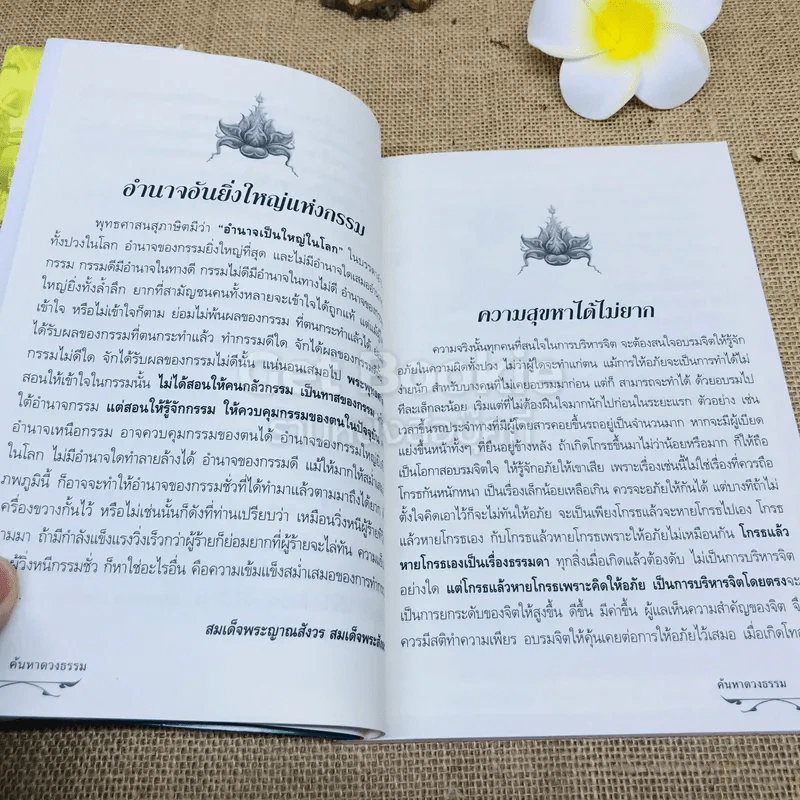 อำนาจอันยิ่งใหญ่แห่งกรรม
พุทธศาสนสุภาษิตมีว่า "อำนาจเป็นใหญ่ในโลก" ในบรรดา
ทั้งปวงในโลก อำนาจของกรรมยิ่งใหญ่ที่สุด และไม่มีอำนาจใดเสมอ
กรรม กรรมดีมีอำนาจในทางดี กรรมไม่ดีมีอำนาจในทางไม่ดี อำนาจของ
ใหญ่ยิ่งทั้งล้ำลึก ยากที่สามัญชนคนทั้งหลายจะเข้าใจได้ถูกแท้ แต่แม้
เข้าใจ หรือไม่เข้าใจก็ตาม ย่อมไม่พ้นผลของกรรม ที่ตนกระทำแล้วได้
ได้รับผลของกรรมที่ตนกระทำแล้ว ทำกรรมดีใด จักได้ผลของกรรม
กรรมไม่ดีใด จักได้รับผลของกรรมไม่ดีนั้น แน่นอนเสมอไป พระพุทธ
สอนให้เข้าใจในกรรมนั้น ไม่ได้สอนให้คนกลัวกรรม เป็นทาสของกรรม
ใต้อำนาจกรรม แต่สอนให้รู้จักกรรม ให้ควบคุมกรรมของตนในปัจจุบัน
อำนาจเหนือกรรม อาจควบคุมกรรมของตนได้ อำนาจของกรรมใหญ่ยิ่ง
ในโลก ไม่มีอำนาจใดทำลายล้างได้ อำนาจของกรรมดี แม้ให้มากให้สม่ำเสมอ
ภพภูมินี้ ก็อาจจะทำให้อำนาจของกรรมชั่วที่ได้ทำมาแล้วตามมาถึงได้ยาก
เครื่องขวางกั้นไว้ หรือไม่เช่นนั้นก็ดังที่ท่านเปรียบว่า เหมือนวิ่งหนีผู้ร้ายที่
ามมา ถ้ามีกำลังแข็งแรงวิ่งเร็วกว่าผู้ร้ายก็ย่อมยากที่ผู้ร้ายจะไล่ทัน ความ
ผู้วิ่งหนีกรรมชั่ว ก็หาใช่อะไรอื่น คือความเข้มแข็งสม่ำเสมอของการทำ
สมเด็จพระญาณสังวร สมเด็จพระสัง
ค้นหาดวงธรรม
ความสุขหาได้ไม่ยาก
ความจริงนั้นทุกคนที่สนใจในการบริหารจิต จะต้องสนใจอบรมจิตให้รู้จัก
อภัยในความผิดทั้งปวง ไม่ว่าผู้ใดจะทำแก่ตน แม้การให้อภัยจะเป็นการทำได้ไม่
ง่ายนัก สำหรับบางคนที่ไม่เคยอบรมมาก่อน แต่ก็ สามารถจะทำได้ ด้วยอบรมไป
ทีละเล็กละน้อย เริ่มแต่ที่ไม่ต้องฝืนใจมากนักไปก่อนในระยะแรก ตัวอย่าง เช่น
เวลาขึ้นรถประจำทางที่มีผู้โดยสารคอยขึ้นรถอยู่เป็นจำนวนมาก หากจะมีผู้เบียด
แย่งขึ้นหน้าทั้งๆ ที่ยืนอยู่ข้างหลัง ถ้าเกิดโกรธขึ้นมาไม่ว่าน้อยหรือมาก ก็ให้ถือ
เป็นโอกาสอบรมจิตใจ ให้รู้จักอภัยให้เขาเสีย เพราะเรื่องเช่นนี้ไม่ใช่เรื่องที่ควรถือ
โกรธกันหนักหนา เป็นเรื่องเล็กน้อยเหลือเกิน ควรจะอภัยให้กันได้ แต่บางทีถ้าไม่
ตั้งใจคิดเอาไว้ก็จะไม่ทันให้อภัย จะเป็นเพียงโกรธแล้วจะหายโกรธไปเอง โกรธ
แล้วหายโกรธเอง กับโกรธแล้วหายโกรธเพราะให้อภัยไม่เหมือนกัน โกรธแล้ว
หายโกรธเองเป็นเรื่องธรรมดา ทุกสิ่งเมื่อเกิดแล้วต้องดับ ไม่เป็นการบริหารจิต
อย่างใด แต่โกรธแล้วหายโกรธเพราะคิดให้อภัย เป็นการบริหารจิตโดยตรงจะ
เป็นการยกระดับของจิตให้สูงขึ้น ดีขึ้น มีค่าขึ้น ผู้แลเห็นความสำคัญของจิต จึง
ควรมีสติทำความเพียร อบรมจิตให้คุ้นเคยต่อการให้อภัยไว้เสมอ เมื่อเกิดโทส
ค้นหาดวงธรรม